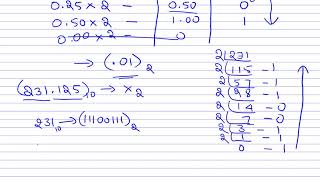 0.25 x 2 - 0.50 0
0.50 x 2 - 1.00 1
0.00 x 2 - 0
→ (.01)2
(231.125)10 → x2
231 10 → (11100111)2
2 231
2 115 - 1
2 57 - 1
2 28 - 1
2 14 - 0
2 7 - 0
2 3 - 1
2 1 - 1
0 - 1